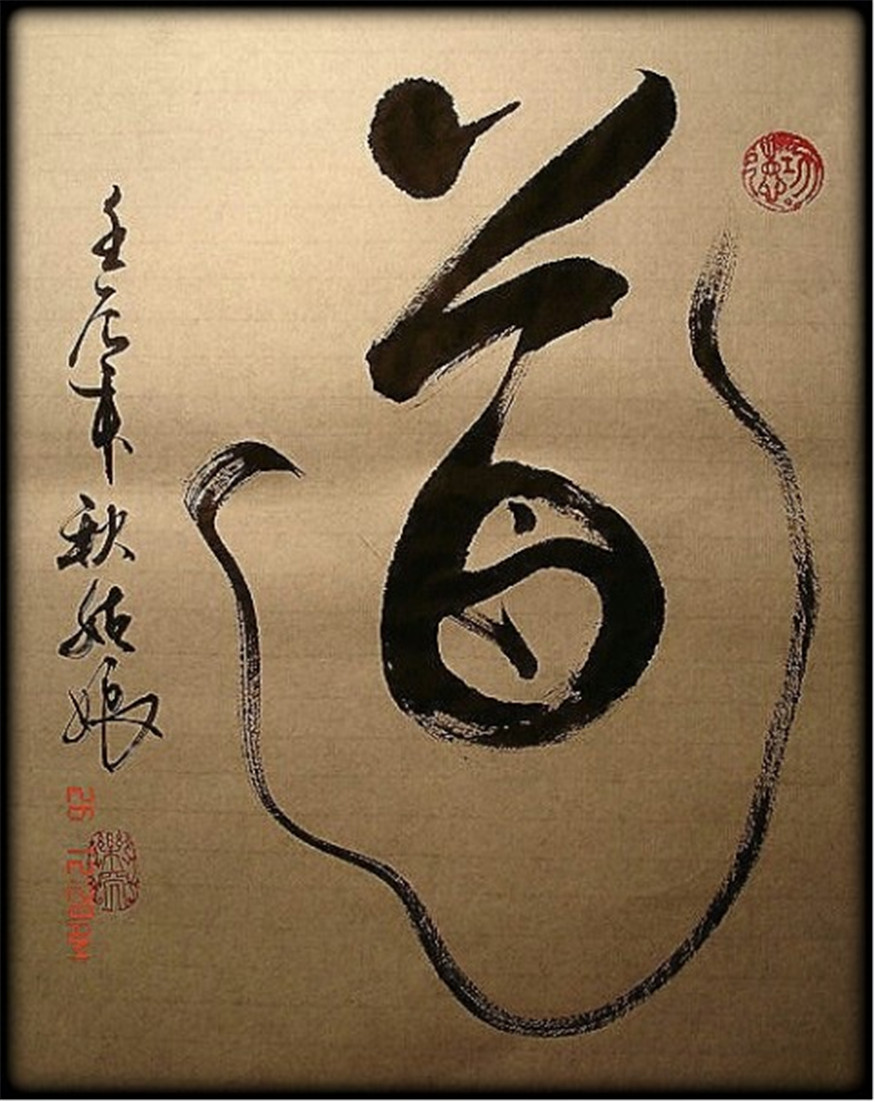 道
壬辰年秋姑娘
26